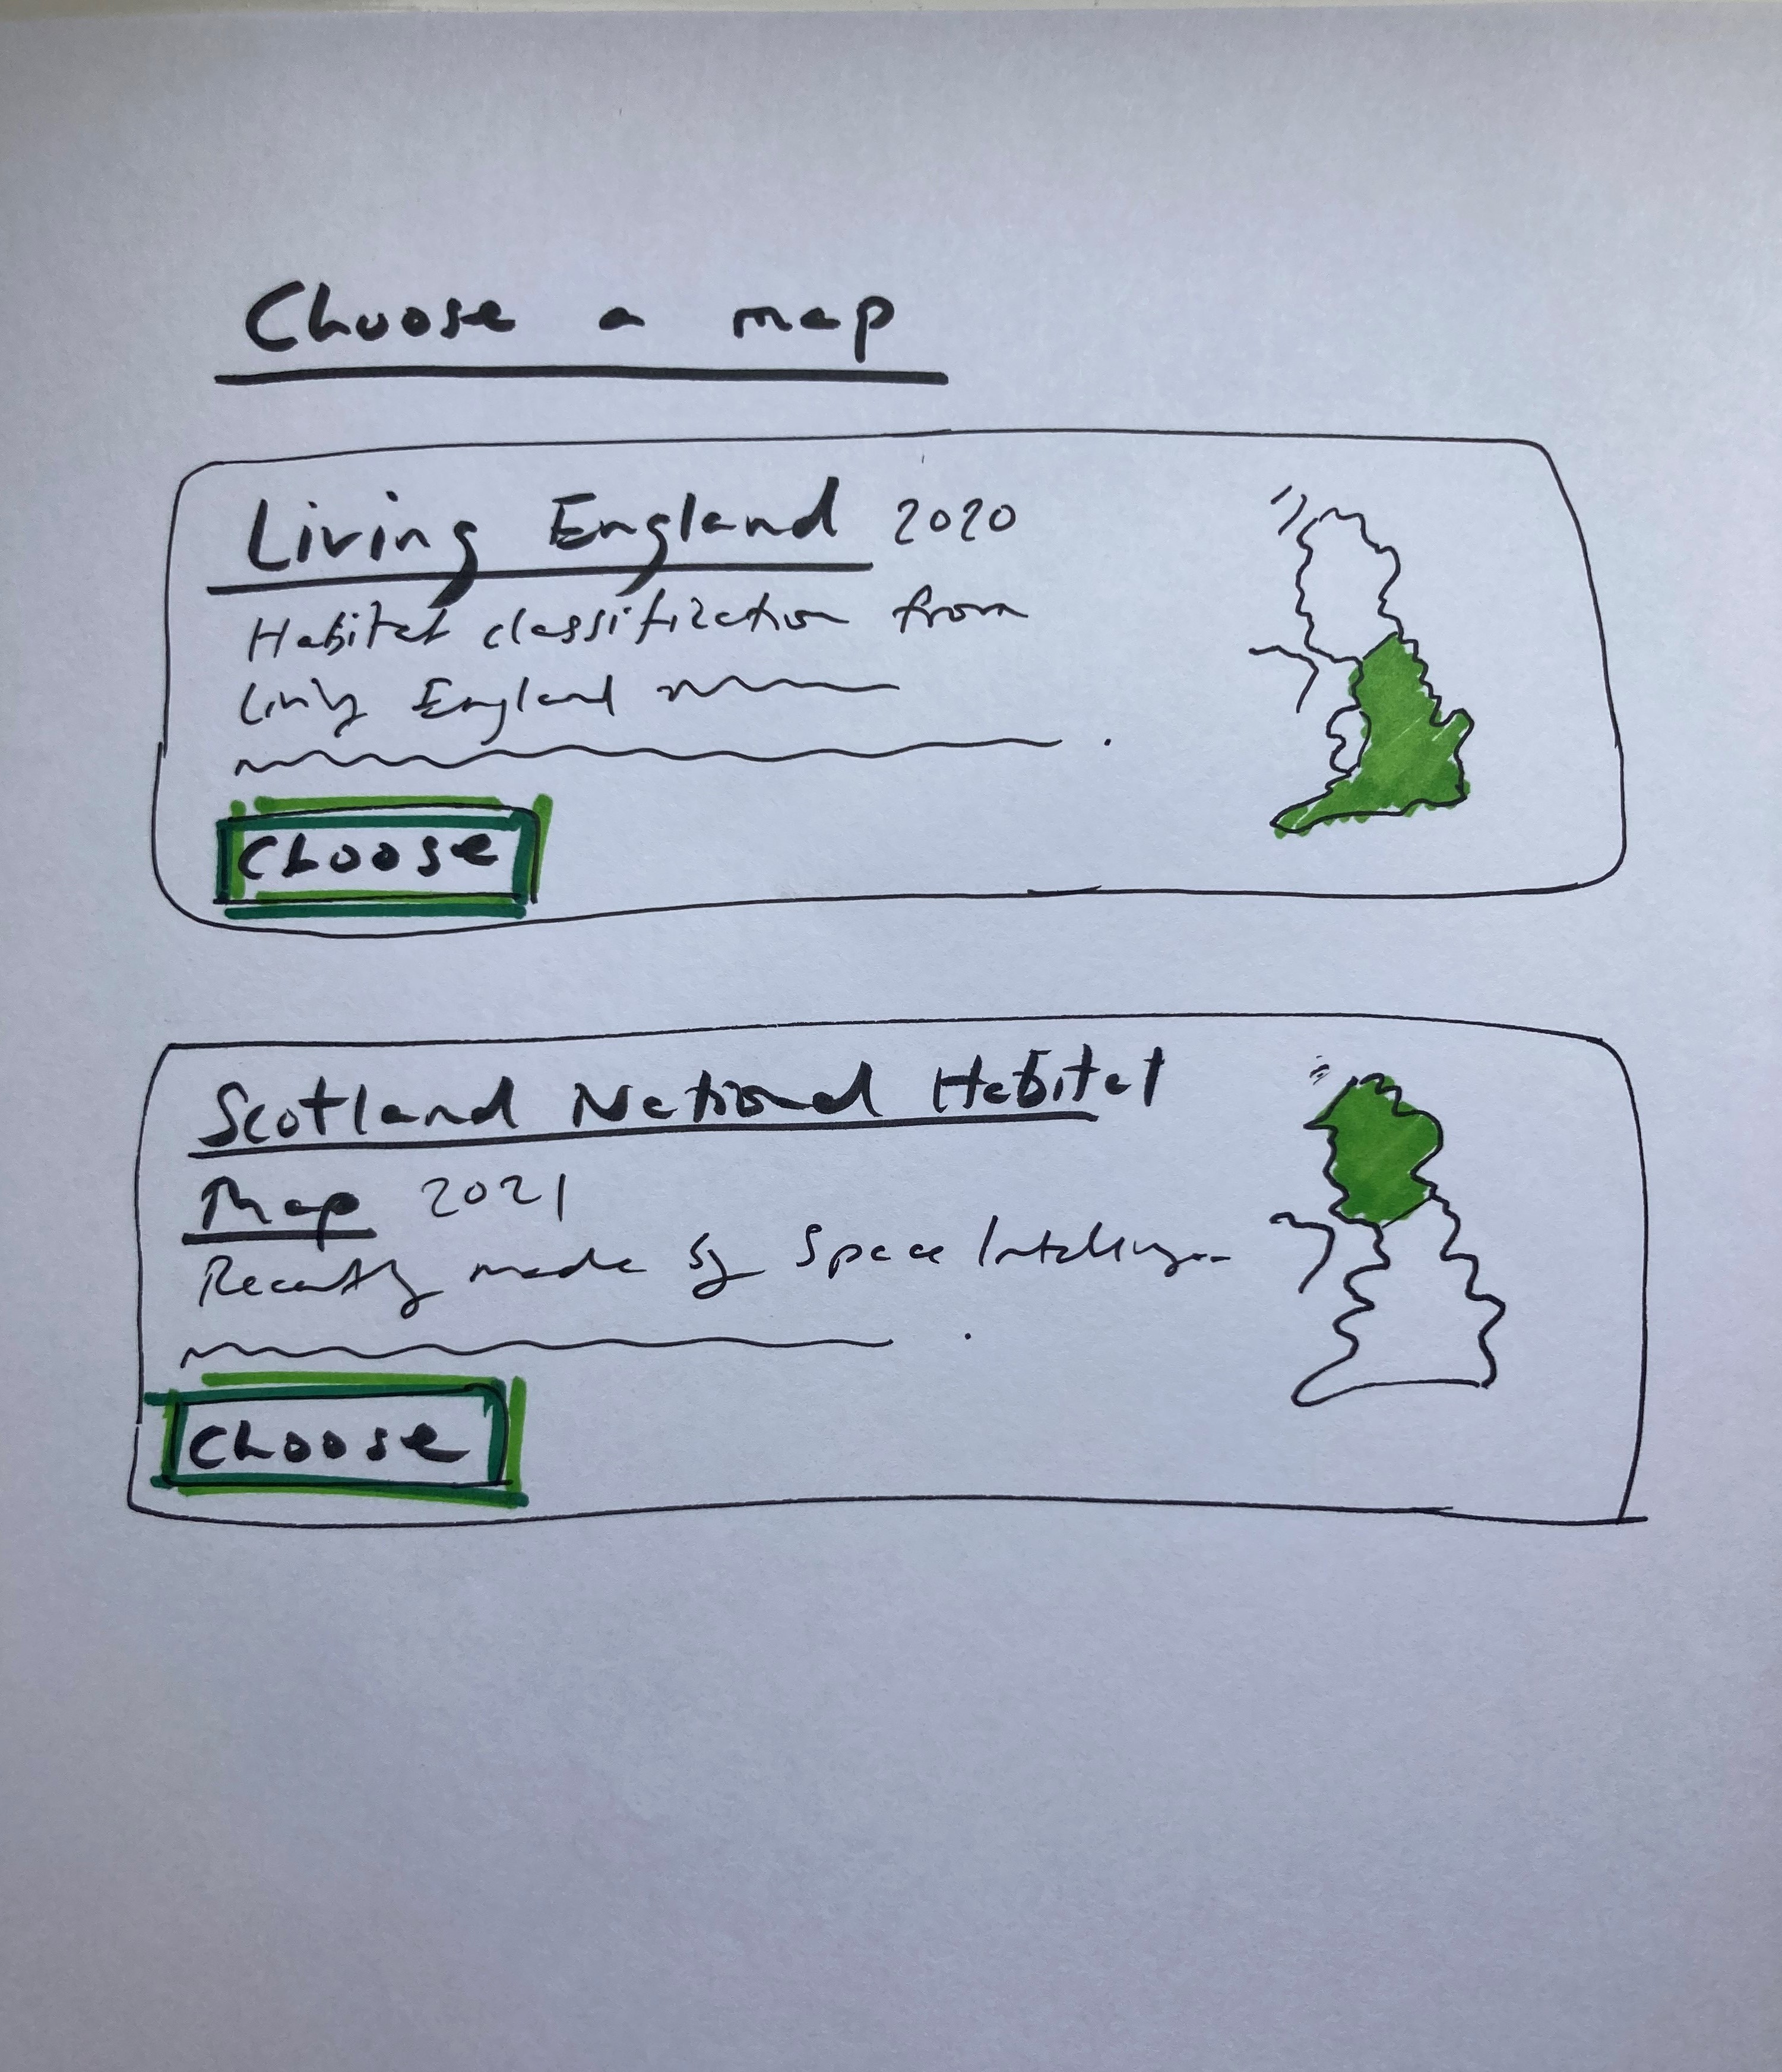 Choose a map
Living England 2020
Habitat classification from
Living England
Choose
Scotland National Habitat
Map 2021
Recently made by Space Intelligence
Choose